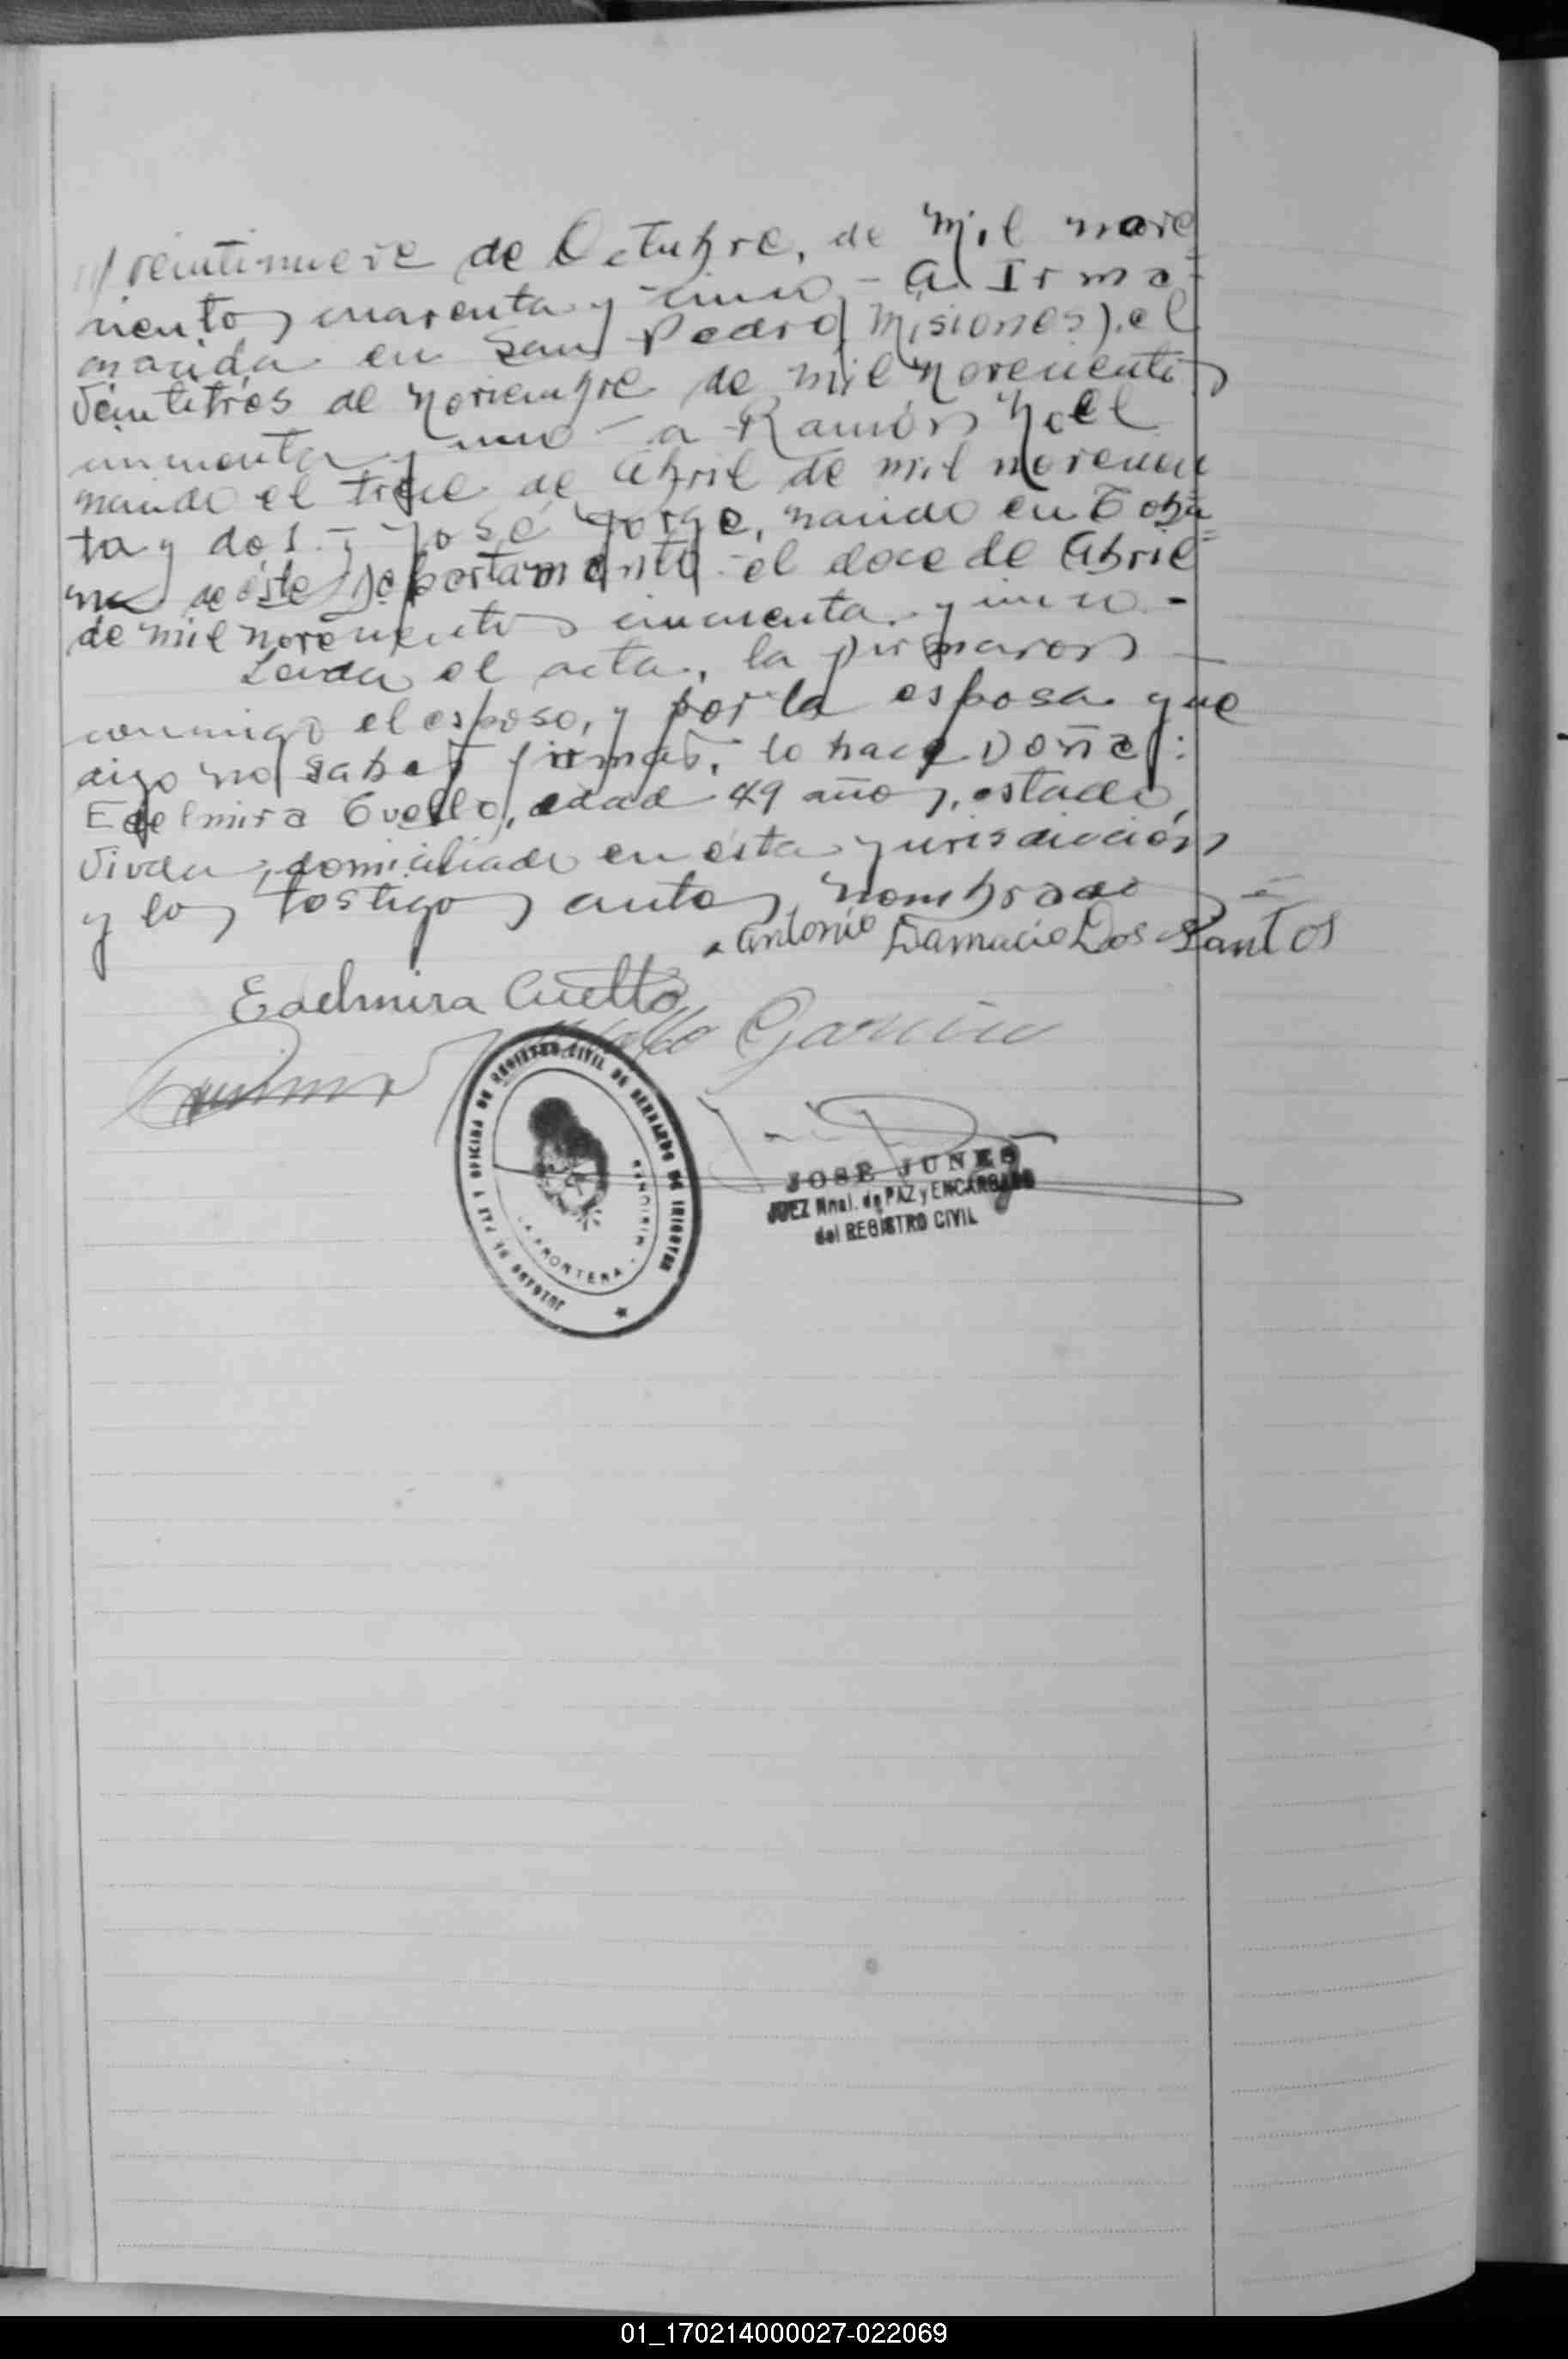 veintinueve de Octubre, de mil nove
cientos cuarenta y cinco - a Irma
nacida en San Pedro (Misiones), el
veintitres de Noviembre de mil novecientos
cincuenta y uno - a Ramón Noel
nacido el trece de Abril de mil novecien
ta y dos. - José Jorge, nacido en Toba
na de éste Departamento - el doce de Abril
de mil novecientos cincuenta y cinco. -
Leida el acta, la firmaron
conmigo el esposo, y por la esposa que
digo no saber firmar, lo hace Doña:
Edelmira Cuello, edad 49 años, estado,
viuda, domiciliada en ésta jurisdicción
y los testigos antes nombrados
Antonio Damacio Dos Santos
Edelmira Cuello
JUZGADO DE PAZ Y OFICINA DE REGISTRO CIVIL DE BERNARDO DE IRIGOYEN
LA FRONTERA - MISIONES
JOSE JUNES
JUEZ Nnal. de PAZ y ENCARGADO
del REGISTRO CIVIL
01_170214000027-022069